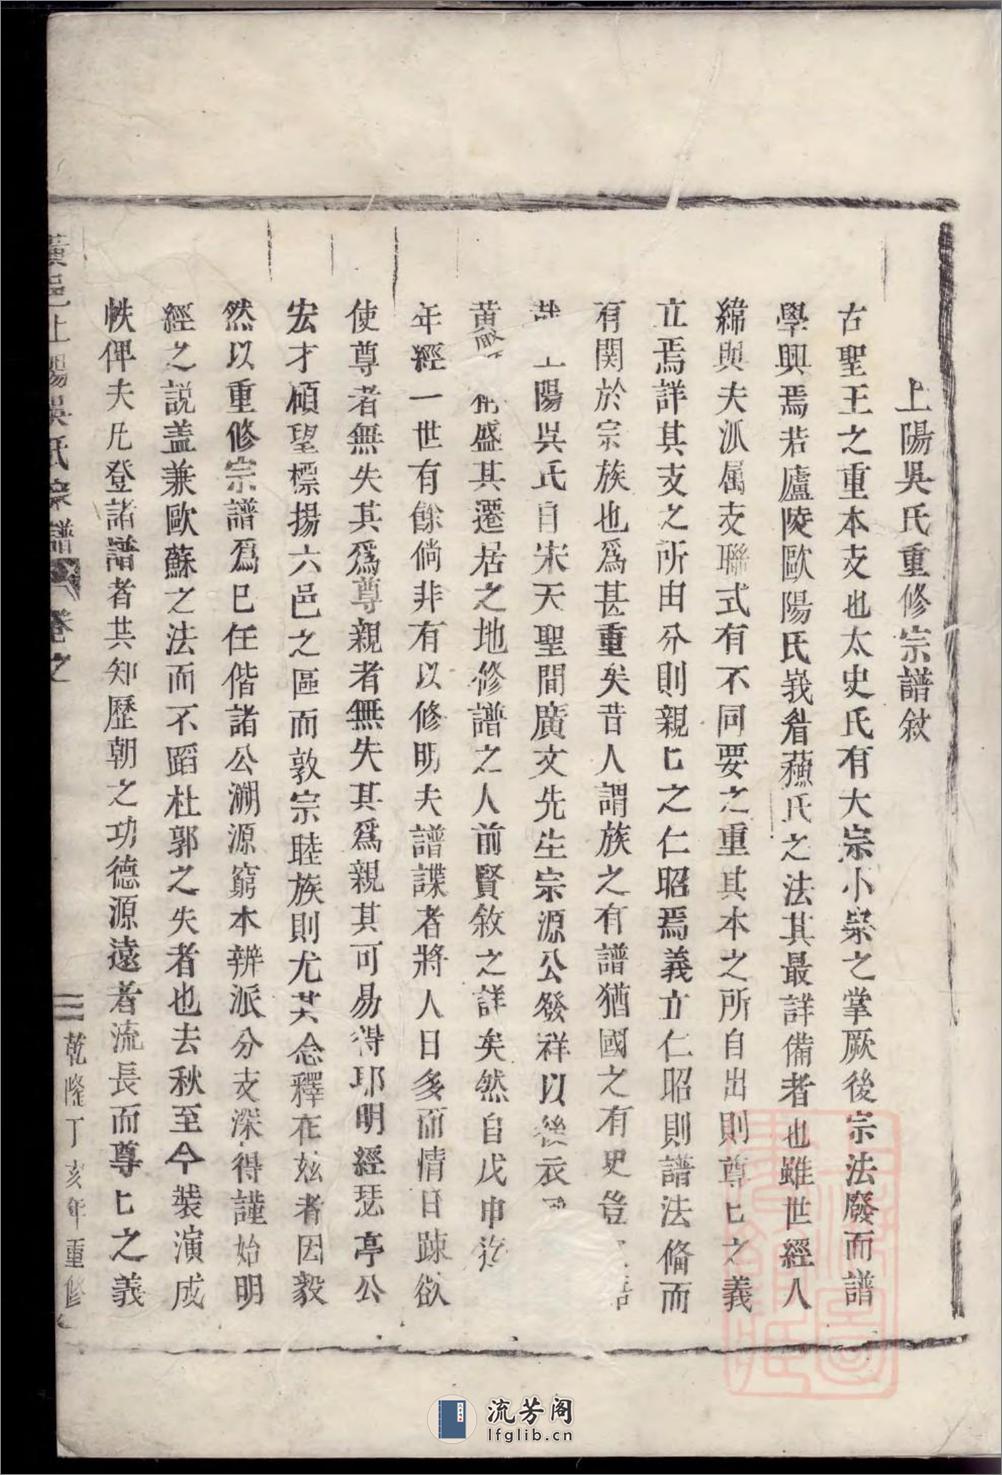 上陽吳氏重修宗譜敘
古聖王之重本支也太史氏有大宗小宗之掌厥後宗法廢而譜
學興焉若廬陵歐陽氏峩眉蘓氏之法其最詳備者也雖世經人
緯與夫派属支聯式有不同要之重其本之所自出則尊匕之義
立焉詳其支之所由分則親匕之仁昭焉義立仁昭則譜法俻而
有関於宗族也爲甚重矣昔人謂族之有譜猶國之有史豈
陽吳氏自宋天聖間廣文先生宗源公發祥以後衣
黄 盛其遷居之地修譜之人前賢敘之詳矣然自戊申迄
年經一世有餘倘非有以修明夫譜諜者將人日多而情日踈欲
使尊者無失其爲尊親者無失其爲親其可易得耶明經 亭公
宏才碩望標揚六邑之區而敦宗睦族則尤其念釋在兹者因毅
然以重修宗譜爲已任偕諸公溯源窮本辨派分支深得謹始明
經之説盖兼歐蘇之法而不蹈杜郭之失者也去秋至今裝演成
帙俾夫凡登諸譜者共知歷朝之功德源遠者流長而尊匕之義
黃邑上陽吳氏宗譜 卷之 二 乾隆丁亥年重修
流芳阁
lfglib.cn